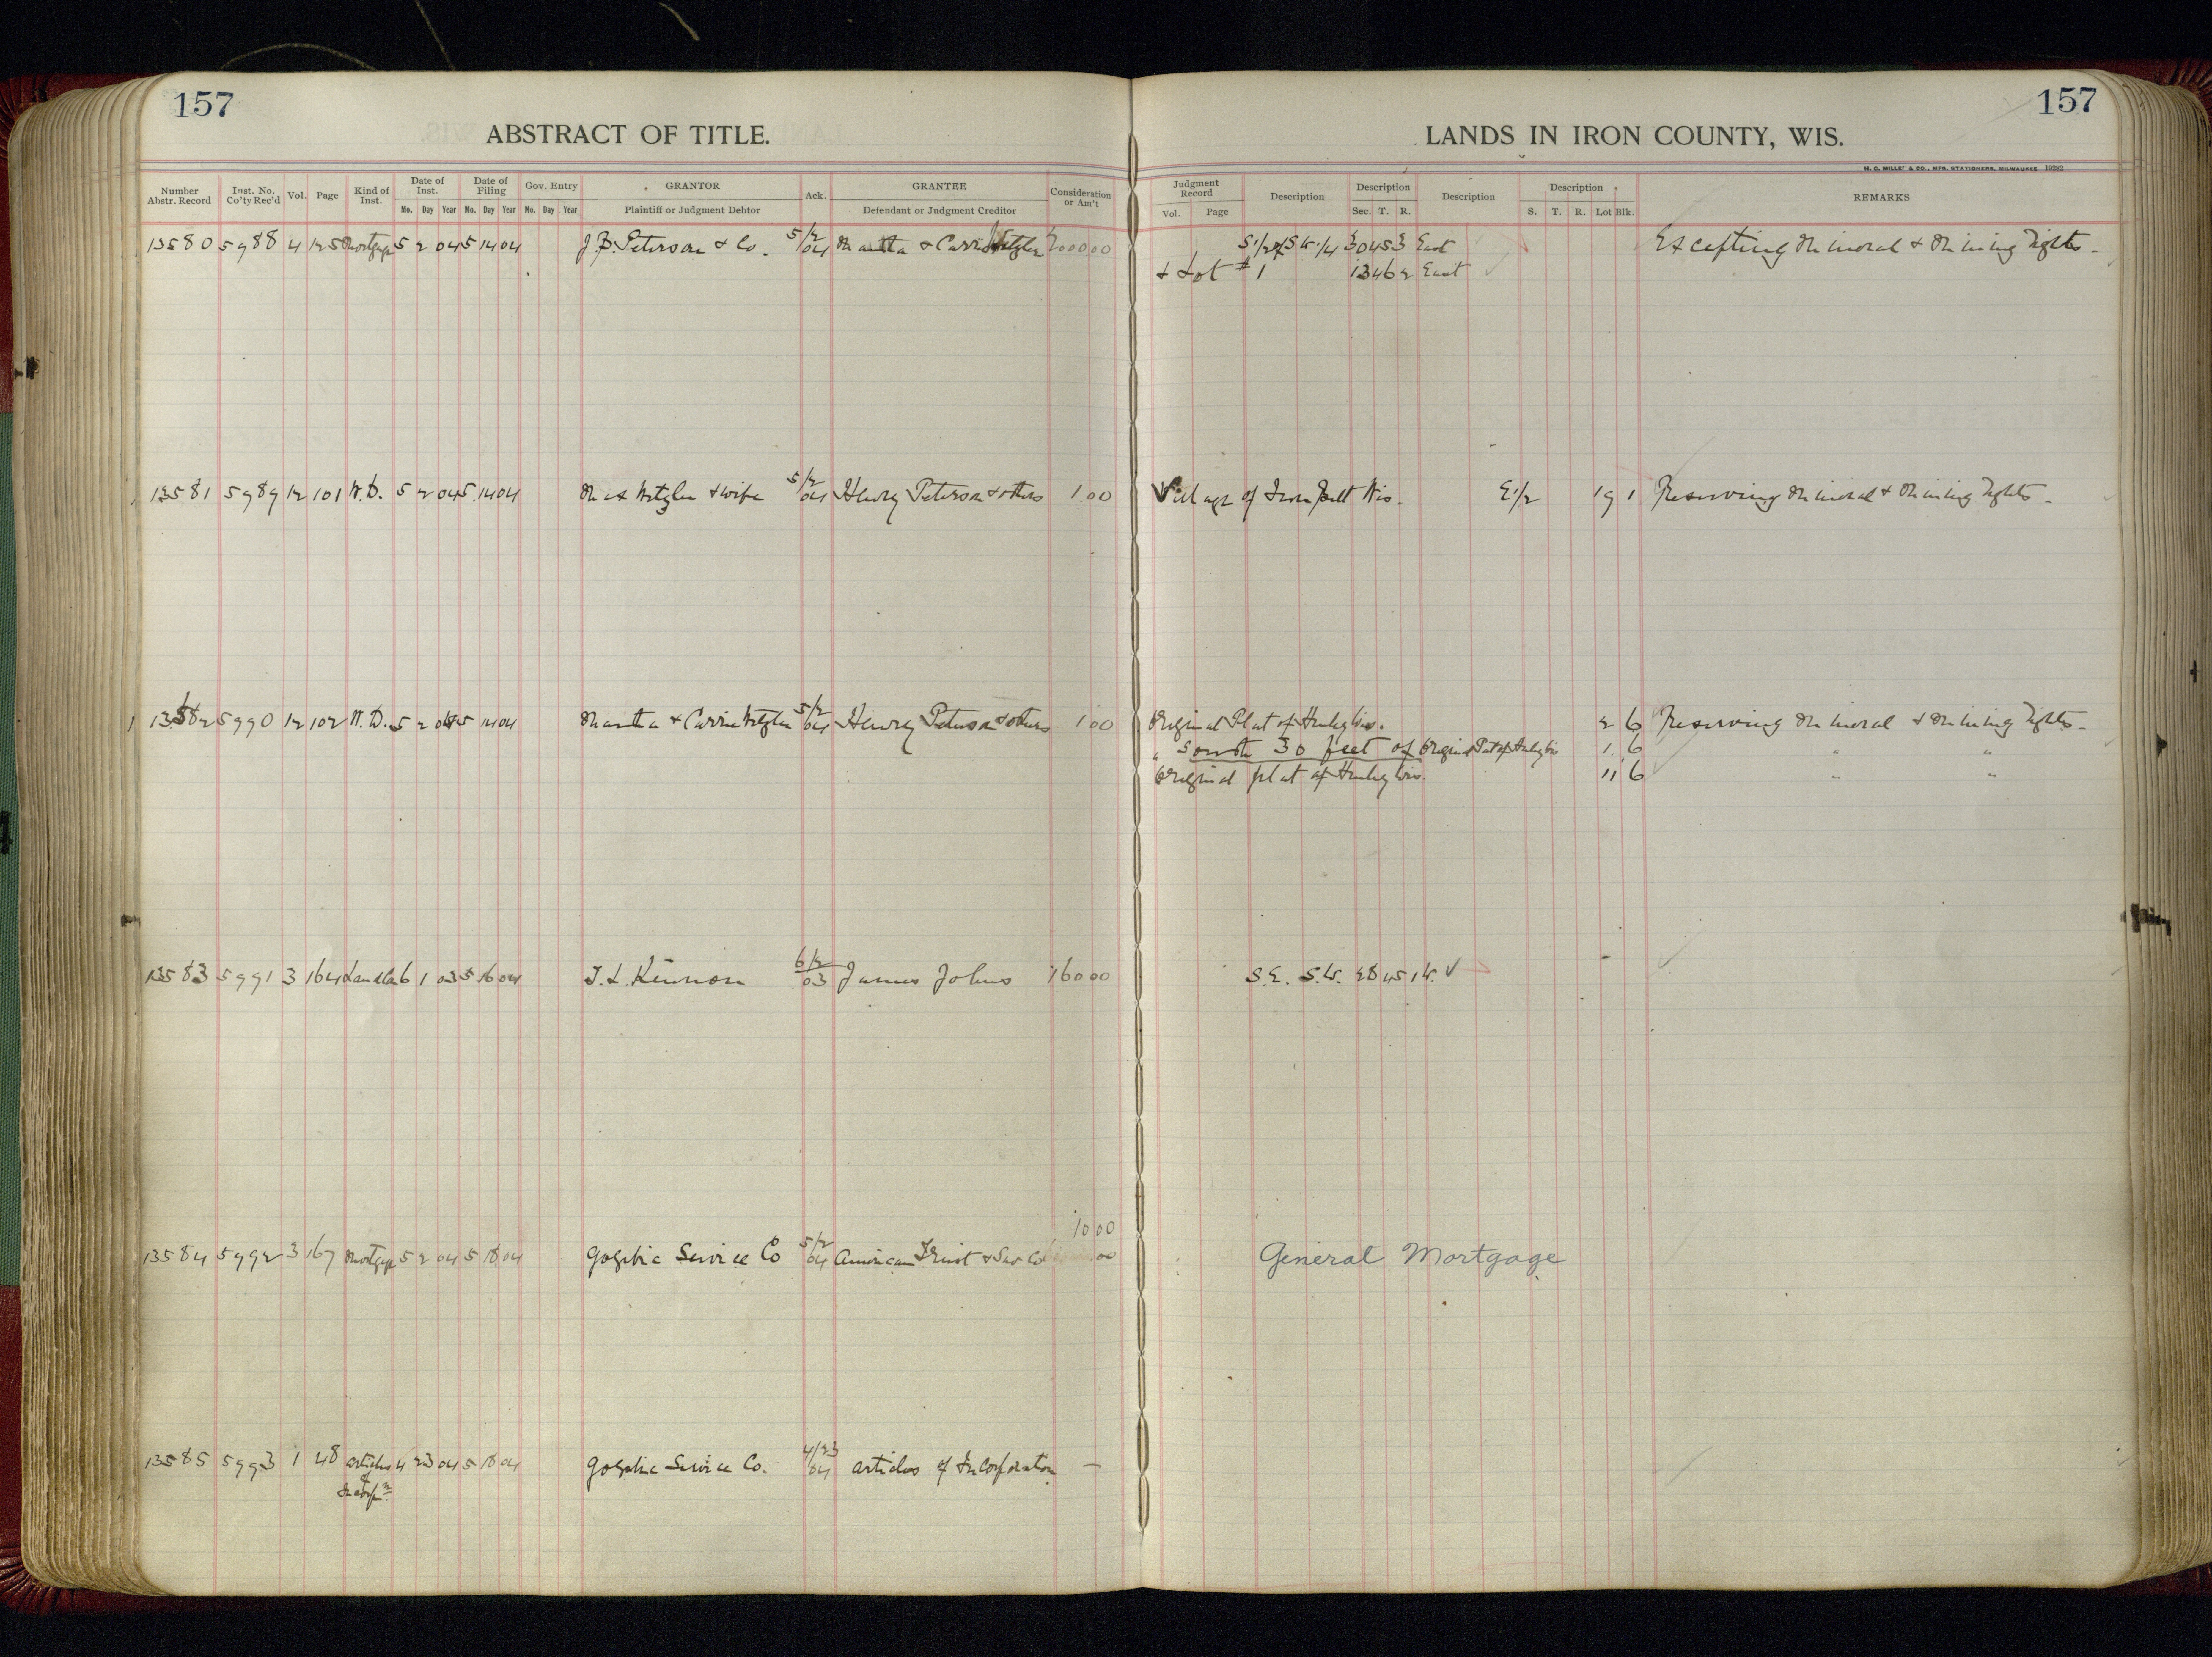 157
157
ABSTRACT OF TITLE.
LANDS IN IRON COUNTY, WIS.
H. C. MILLER & CO., MFG. STATIONERS, MILWAUKEE
Number Abstr. Record Inst. No. Co'ty Rec'd Vol. Page Kind of Inst. Date of Inst. Date of Filing Gov. Entry GRANTOR Ack. GRANTEE Consideration or Am't Judgment Record Description Description Description Description REMARKS
Mo. Day Year Mo. Day Year Mo. Day Year Plaintiff or Judgment Debtor Defendant or Judgment Creditor Vol. Page Sec. T. R. S. T. R. Lot Blk.
13580 5988 4 125 Mortgage 5 2 04 5 14 04 J.B. Peterson & Co. 5/2/04 Martha & Carrie Wetzler 2000 00 S1/2 of SW.1/4 30 45 3 East Excepting Mineral & Mining Rights -
& Lot #1 13 46 2 East
13581 5989 12 101 W.D. 5 2 04 5 14 04 Max Wetzler & wife 5/2/04 Henry Peterson & others 1.00 Village of Iron Belt Wis. E1/2 19 1 Reserving Mineral & Mining Rights -
13582 5990 12 102 W.D. 5 2 04 5 14 04 Martha & Carrie Wetzler 5/2/04 Henry Peterson & others 1 00 Original Plat of Hurley Wis. 2 6 Reserving Mineral & Mining Rights -
" South 30 feet of Original Plat of Hurley Wis 1 6 " "
Original plat of Hurley Wis. 11 6 " "
13583 5991 3 164 6 1 03 5 16 04 6/2/03 James Johns 160 00 S.E. S.W. 28 45 1W. ✓
10 00
13584 5992 3 167 Mortgage 5 2 04 5 18 04 Gogebic Service Co 5/2/04 American Trust & Sav Co 00 General Mortgage
13585 5993 1 48 articles of Incorpn 4 23 04 5 18 04 Gogebic Service Co. 4/23/04 articles of Incorporation —